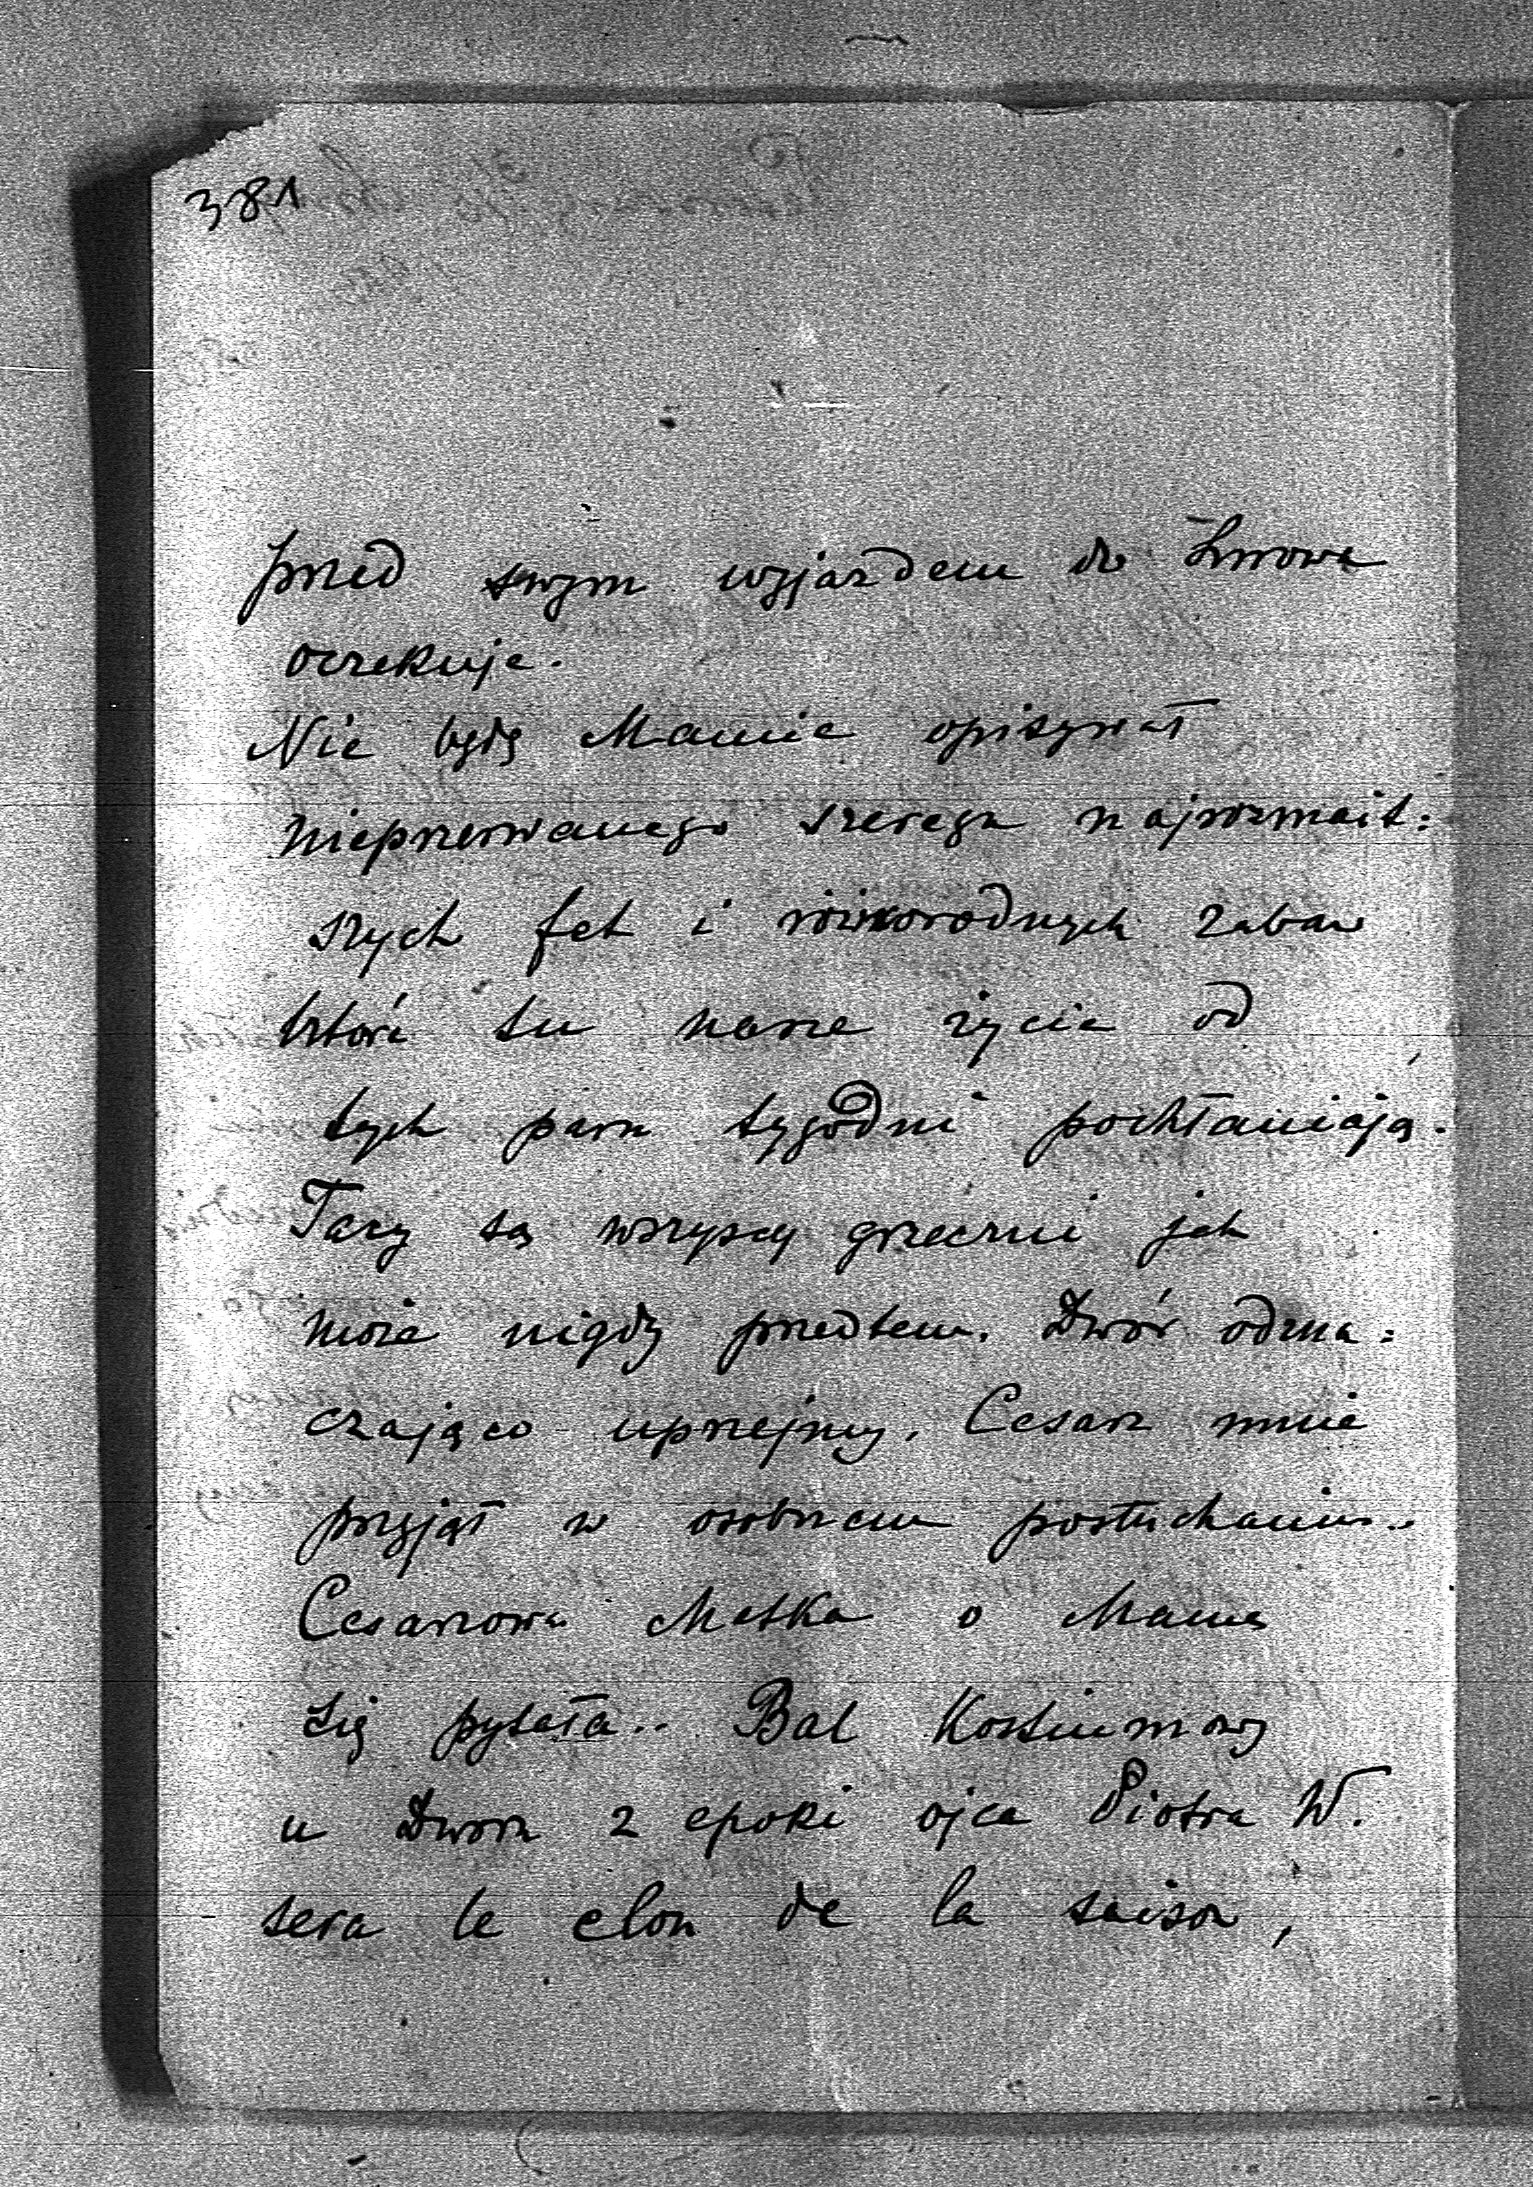 381
przed swym wyjazdem do Lwowa
oczekuje.
Nie będę Mamie opisywał
nieprzerwanego szeregu najrozmait:
szych fet i różnorodnych zabaw
które tu nasze życie od
tych paru tygodni pochłaniają.
Tacy są wszyscy grzeczni jak
może nigdy przedtem. Dwór odzna:
czająco uprzejmy. Cesarz mnie
przyjął w osobnem posłuchaniu..
Cesarzowa Matka o Mamę
się pytała.. Bal Kostiumowy
u Dworu z epoki ojca Piotra W.
sera le clou de la saison,